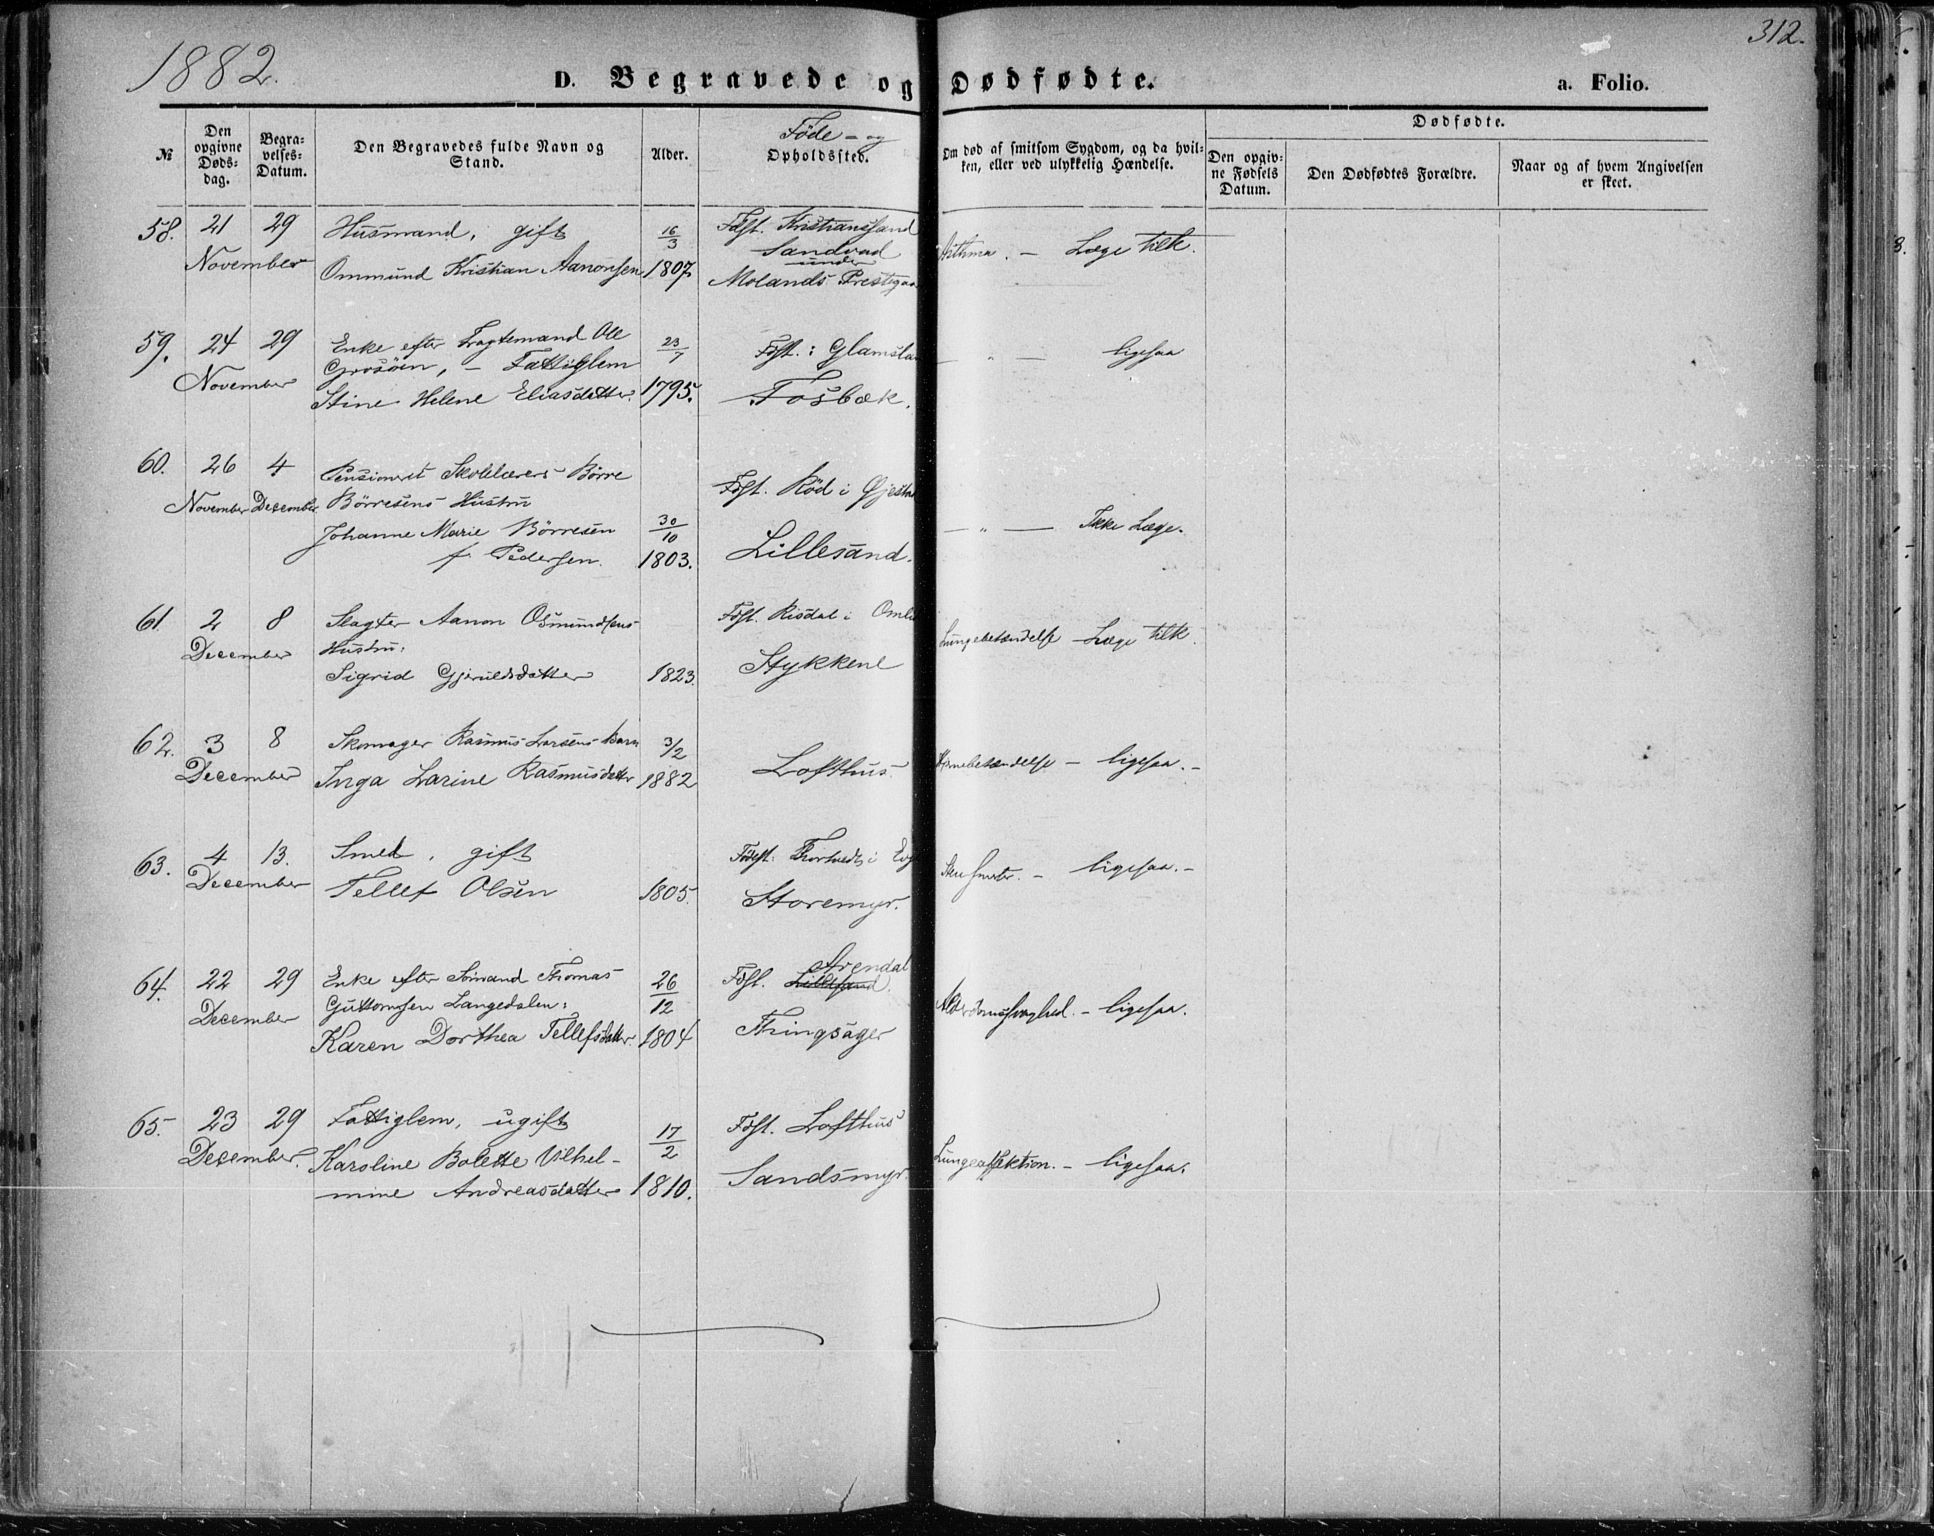 1882.
312.
D. Begravede og Dødfødte.
a. Folio.
№
Den opgivne Døds-dag.
Begra-velses-Datum.
Den Begravedes fulde Navn og Stand.
Alder.
Føde- og
Opholdssted.
Om død af smitsom Sygdom, og da hvil-
ken, eller ved ulykkelig Hændelse.
Dødfødte.
Den opgiv-
ne Fødsels
Datum.
Den Dødfødtes Forældre.
Naar og af hvem Angivelsen
er skeet.
58. 21 29 Husmand, gift 16/3 Fdst. Kristianssand
November Ommund Kristian Aanonsen 1807 Sandvad
under
Molands Prestegaa
Asthma. — Læge tilk.
59. 24 29 Enke efter Fragtemand Ole 23/7 Fdst.: Glamsla
November Grosöen, — Fattiglem
Stine Helene Eliasdatter. 1795. Fosbæk.
— " — ligesaa
60. 26 4 Pensioneret Skolelærer Börre
November December Börresens Hustru Fdst. Röd i Öjesta
Johanne Marie Börresen 30/10
f. Pedersen. 1803. Lillesand.
— " — Ikke Læge.
61. 2 8 Slagter Aanon Osmundsens Fdst. Risdal i Omli
December Hustru:
Sigrid Gjeruldsdatter 1823. Stykkene
Lungebetændelse — Læge tilk.
62. 3 8 Skomager Rasmus Larsens Barn 3/2
December Inga Larine Rasmusdatter 1882 Lofthus.
Hjernebetændelse — ligesaa. —
63. 4 13. Smed, gift Fdest: Tortvedt i Evj
December Tellef Olsen 1805. Storemyr.
ligesaa. —
64. 22 29 Enke efter Sömand Thomas 26/12 Fdst. Lillesand. Arendal
December Guttormsen Langedalen:
Karen Dorthea Tellefsdatter. 1804 Thingsager
Alderdomssvaghed. — ligesaa.
65. 23 29 Fattiglem, ugift 17/2 Fdst. Lofthus
December. Karoline Bolette Vilhel-
mine Andreasdatter 1810. Sandsmyr.
Lungeaffektion. — ligesaa.